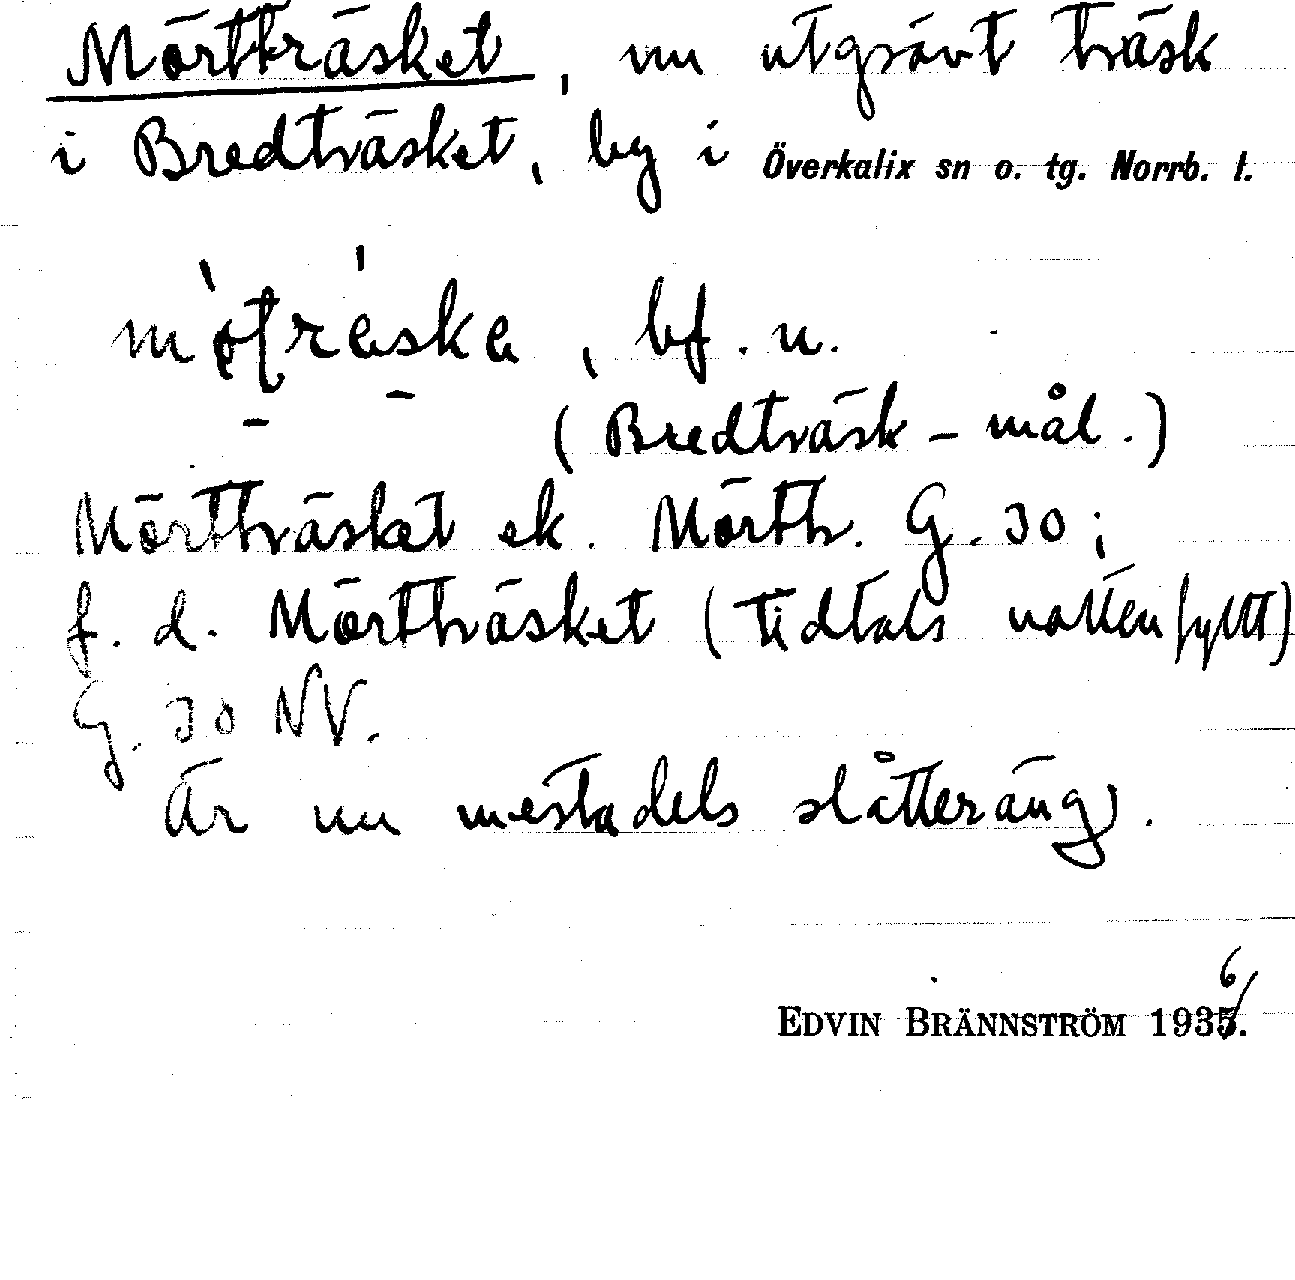 Mörtträsket, nu utgrävt träsk
i Bredträsket, by i Överkalix sn o. tg. Norrb. l.
bf. n.
(Bredträsk-mål.)
Mörtträsket ek. Mörttr. G. 30;
f. d. Mörtträsket (tidtals vattenfyllt)
G. 30 NV.
Är nu mestadels slåtteräng.
6
EDVIN BRÄNNSTRÖM 1935.